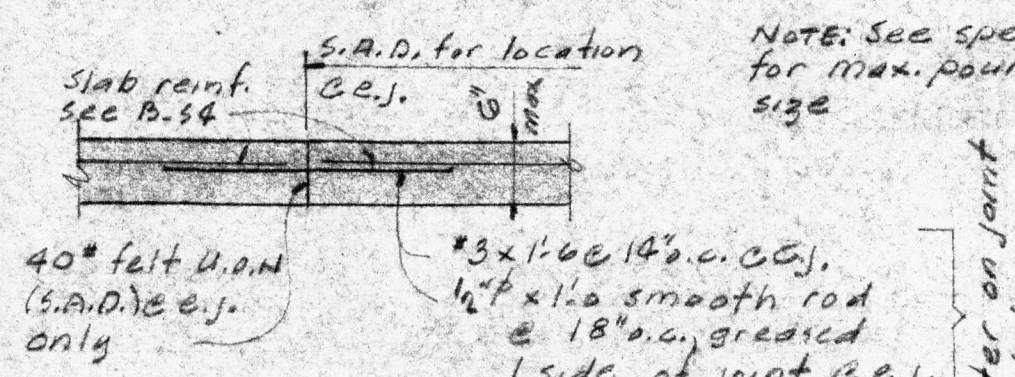 S.A.D. for location
@ e.j.
NOTE: See spe
for max. pour
size
slab reinf.
see B-S4
6"
max
40# felt U.O.N
(S.A.D.) @ e.j.
only
#3 x 1'-6 @ 14" o.c. @ C.j.
1/2"φ x 1'-0 smooth rod
@ 18" o.c., greased
1 side of joint @ e.j.
ter on joint